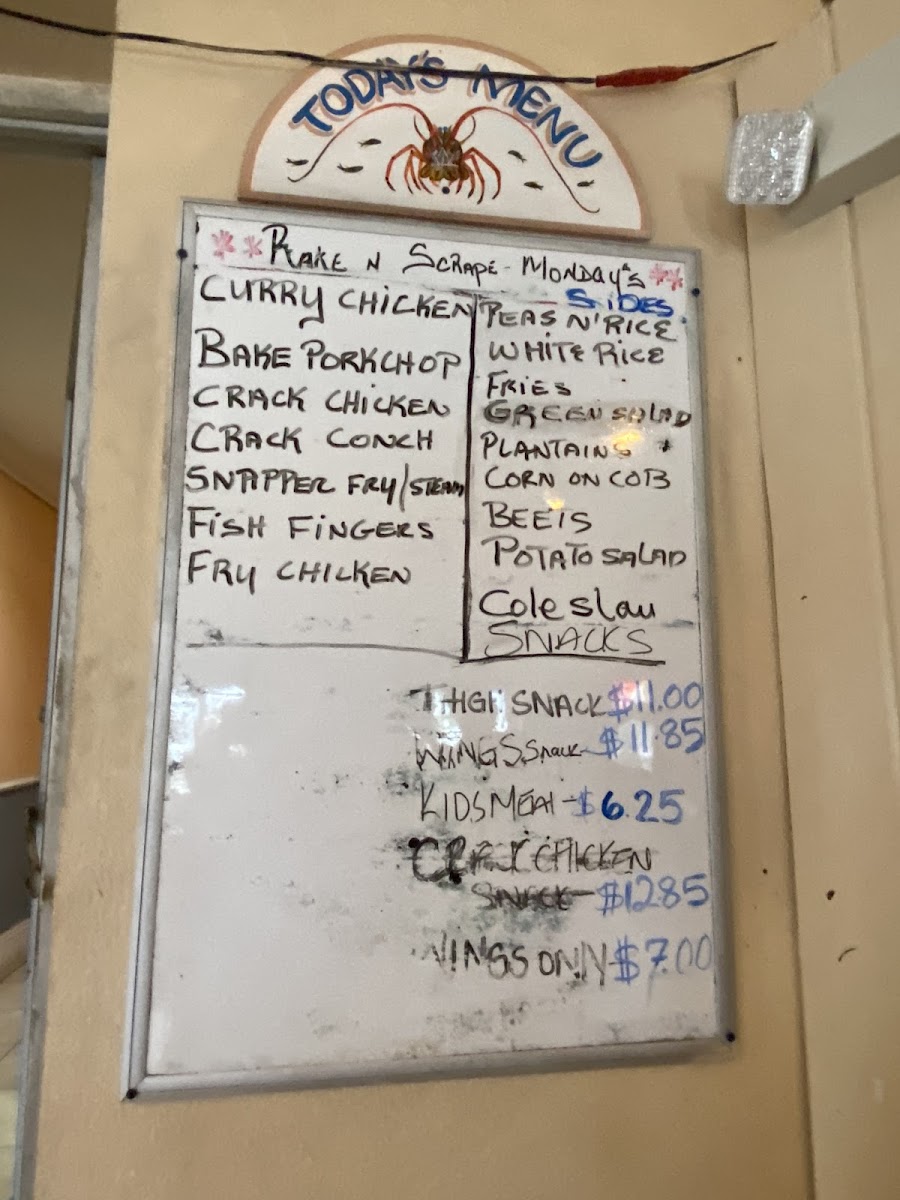 TODAY'S MENU
**RAKE N SCRAPE - MONDAY'S**
CURRY CHICKEN
BAKE PORKCHOP
CRACK CHICKEN
CRACK CONCH
SNAPPER FRY/STEAM
FISH FINGERS
FRY CHICKEN
SIDES
PEAS N' RICE
WHITE RICE
FRIES
GREEN SALAD
PLANTAINS
CORN ON COB
BEETS
POTATO SALAD
Cole slau
SNACKS
THIGH SNACK $11.00
WINGS Snack - $11.85
KIDS MEAL - $6.25
CRACK CHICKEN
SNACK - $12.85
WINGS ONLY - $7.00